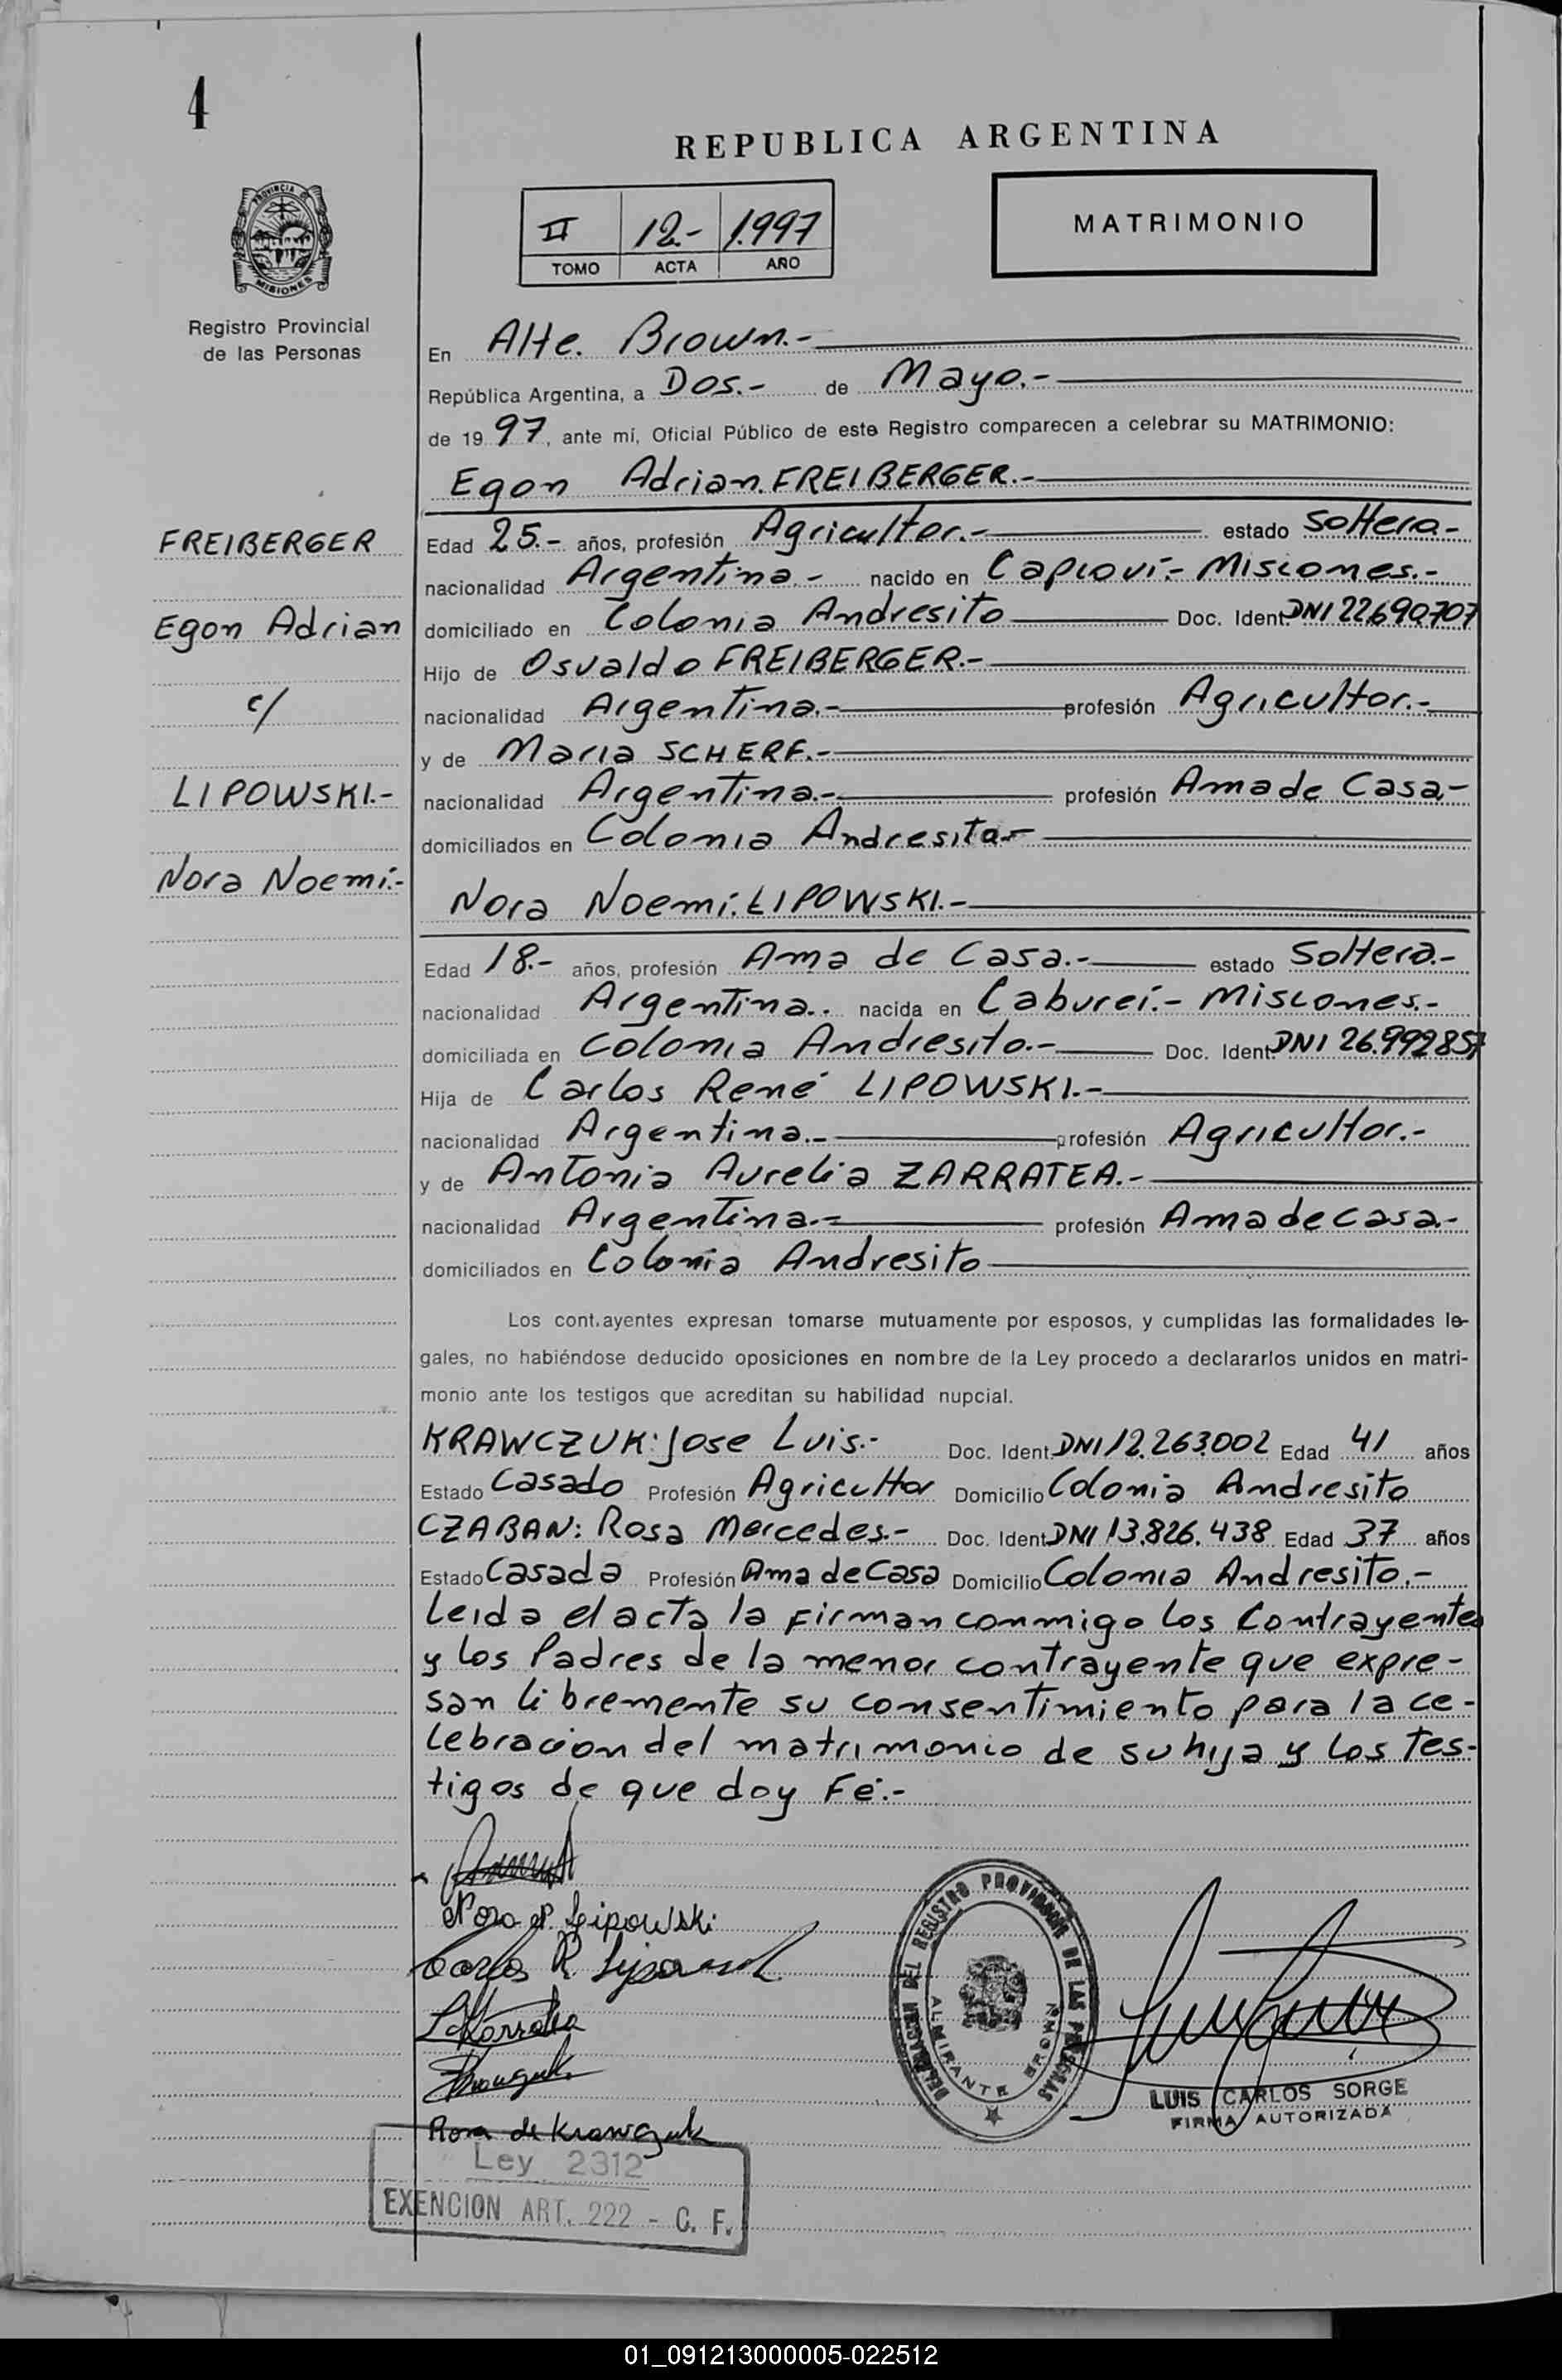 4
REPUBLICA ARGENTINA
PROVINCIA DE
MISIONES
II 12.- 1.997
TOMO ACTA AÑO
MATRIMONIO
Registro Provincial
de las Personas
En Alte. Brown.-
República Argentina, a Dos.- de Mayo.-
de 19 97, ante mí, Oficial Público de este Registro comparecen a celebrar su MATRIMONIO:
Egon Adrian. FREIBERGER.-
FREIBERGER
Egon Adrian
c/
LIPOWSKI.-
Nora Noemí.-
Edad 25.- años, profesión Agricultor.- estado Soltero.-
nacionalidad Argentina.- nacido en Capioví.- Misiones.-
domiciliado en Colonia Andresito Doc. Ident DNI 22.690.707
Hijo de Osvaldo FREIBERGER.-
nacionalidad Argentina.- profesión Agricultor.-
y de Maria SCHERF.-
nacionalidad Argentina.- profesión Ama de Casa.-
domiciliados en Colonia Andresito.-
Nora Noemí. LIPOWSKI.-
Edad 18.- años, profesión Ama de Casa.- estado Soltera.-
nacionalidad Argentina.. nacida en Cabureí.- Misiones.-
domiciliada en Colonia Andresito.- Doc. Ident DNI 26.992857
Hija de Carlos René LIPOWSKI.-
nacionalidad Argentina.- profesión Agricultor.-
y de Antonia Aurelia ZARRATEA.-
nacionalidad Argentina.- profesión Ama de casa.-
domiciliados en Colonia Andresito
Los cont.ayentes expresan tomarse mutuamente por esposos, y cumplidas las formalidades le-
gales, no habiéndose deducido oposiciones en nombre de la Ley procedo a declararlos unidos en matri-
monio ante los testigos que acreditan su habilidad nupcial.
KRAWCZUK: Jose Luis.- Doc. Ident. DNI 12.263.002 Edad 41 años
Estado Casado Profesión Agricultor Domicilio Colonia Andresito
CZABAN: Rosa Mercedes.- Doc. Ident DNI 13.826.438 Edad 37 años
Estado Casada Profesión Ama de Casa Domicilio Colonia Andresito.-
Leida el acta la Firman conmigo los Contrayentes
y los Padres de la menor contrayente que expre-
san libremente su consentimiento para la ce-
lebracion del matrimonio de su hija y los tes-
tigos de que doy Fé.-
Nora N. Lipowski
Carlos R. Lipowski
Rosa de Krawczuk
DELEGACION DEL REGISTRO PROVINCIAL DE LAS PERSONAS
ALMIRANTE BROWN
LUIS CARLOS SORGE
FIRMA AUTORIZADA
Ley 2312
EXENCION ART. 222 - C. F.
01_091213000005-022512